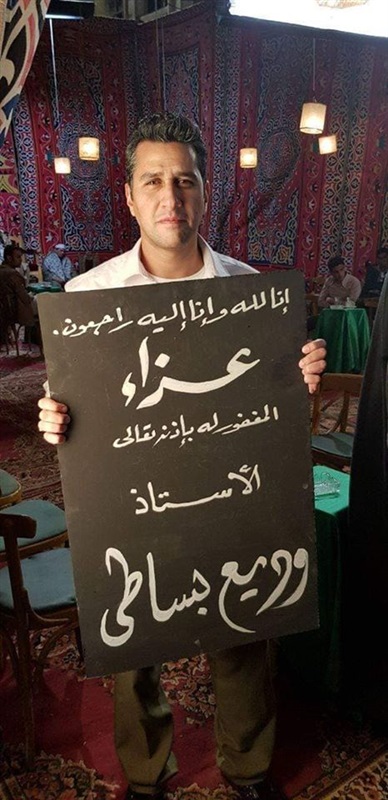 إنا لله وإنا إليه راجعون.
عزاء
المغفور له بإذنه تعالى
الأستاذ
وديع بساطى